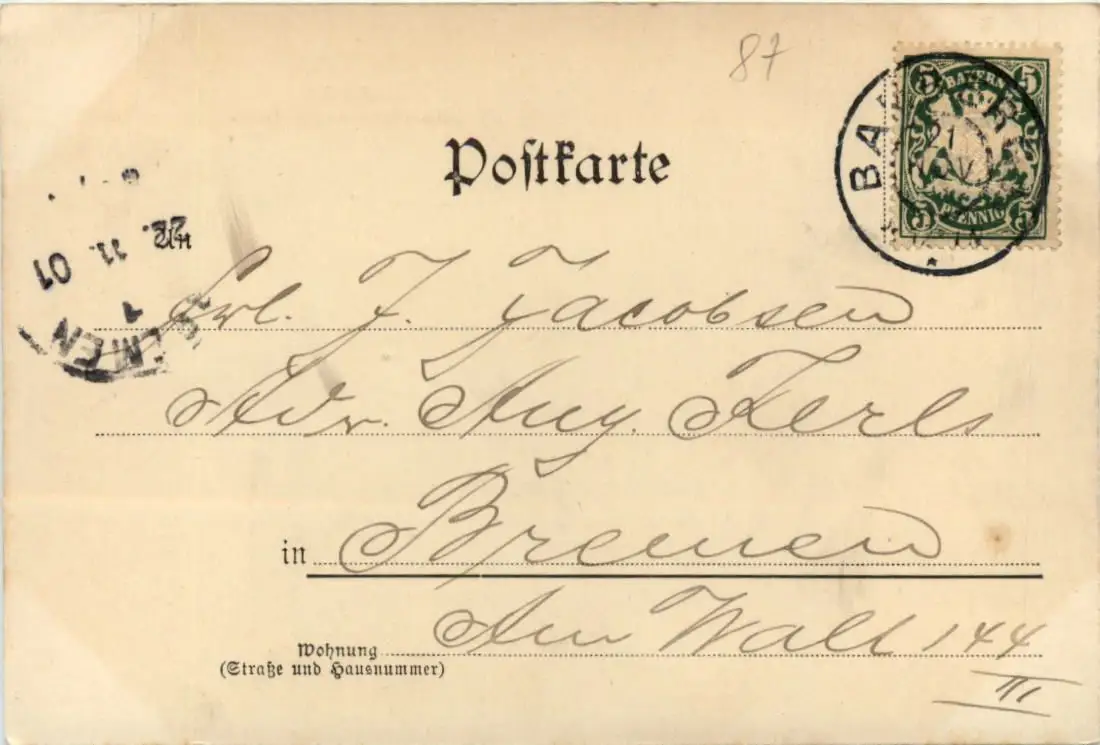 87
Postkarte
BAYERN
5 5
PFENNIG
5 5
21
22. 11. 01
1
An
Frl. J. Jacobsen
Adr. Aug. Kerls
in Bremen
Wohnung Am Wall 144
(Straße und Hausnummer)
III